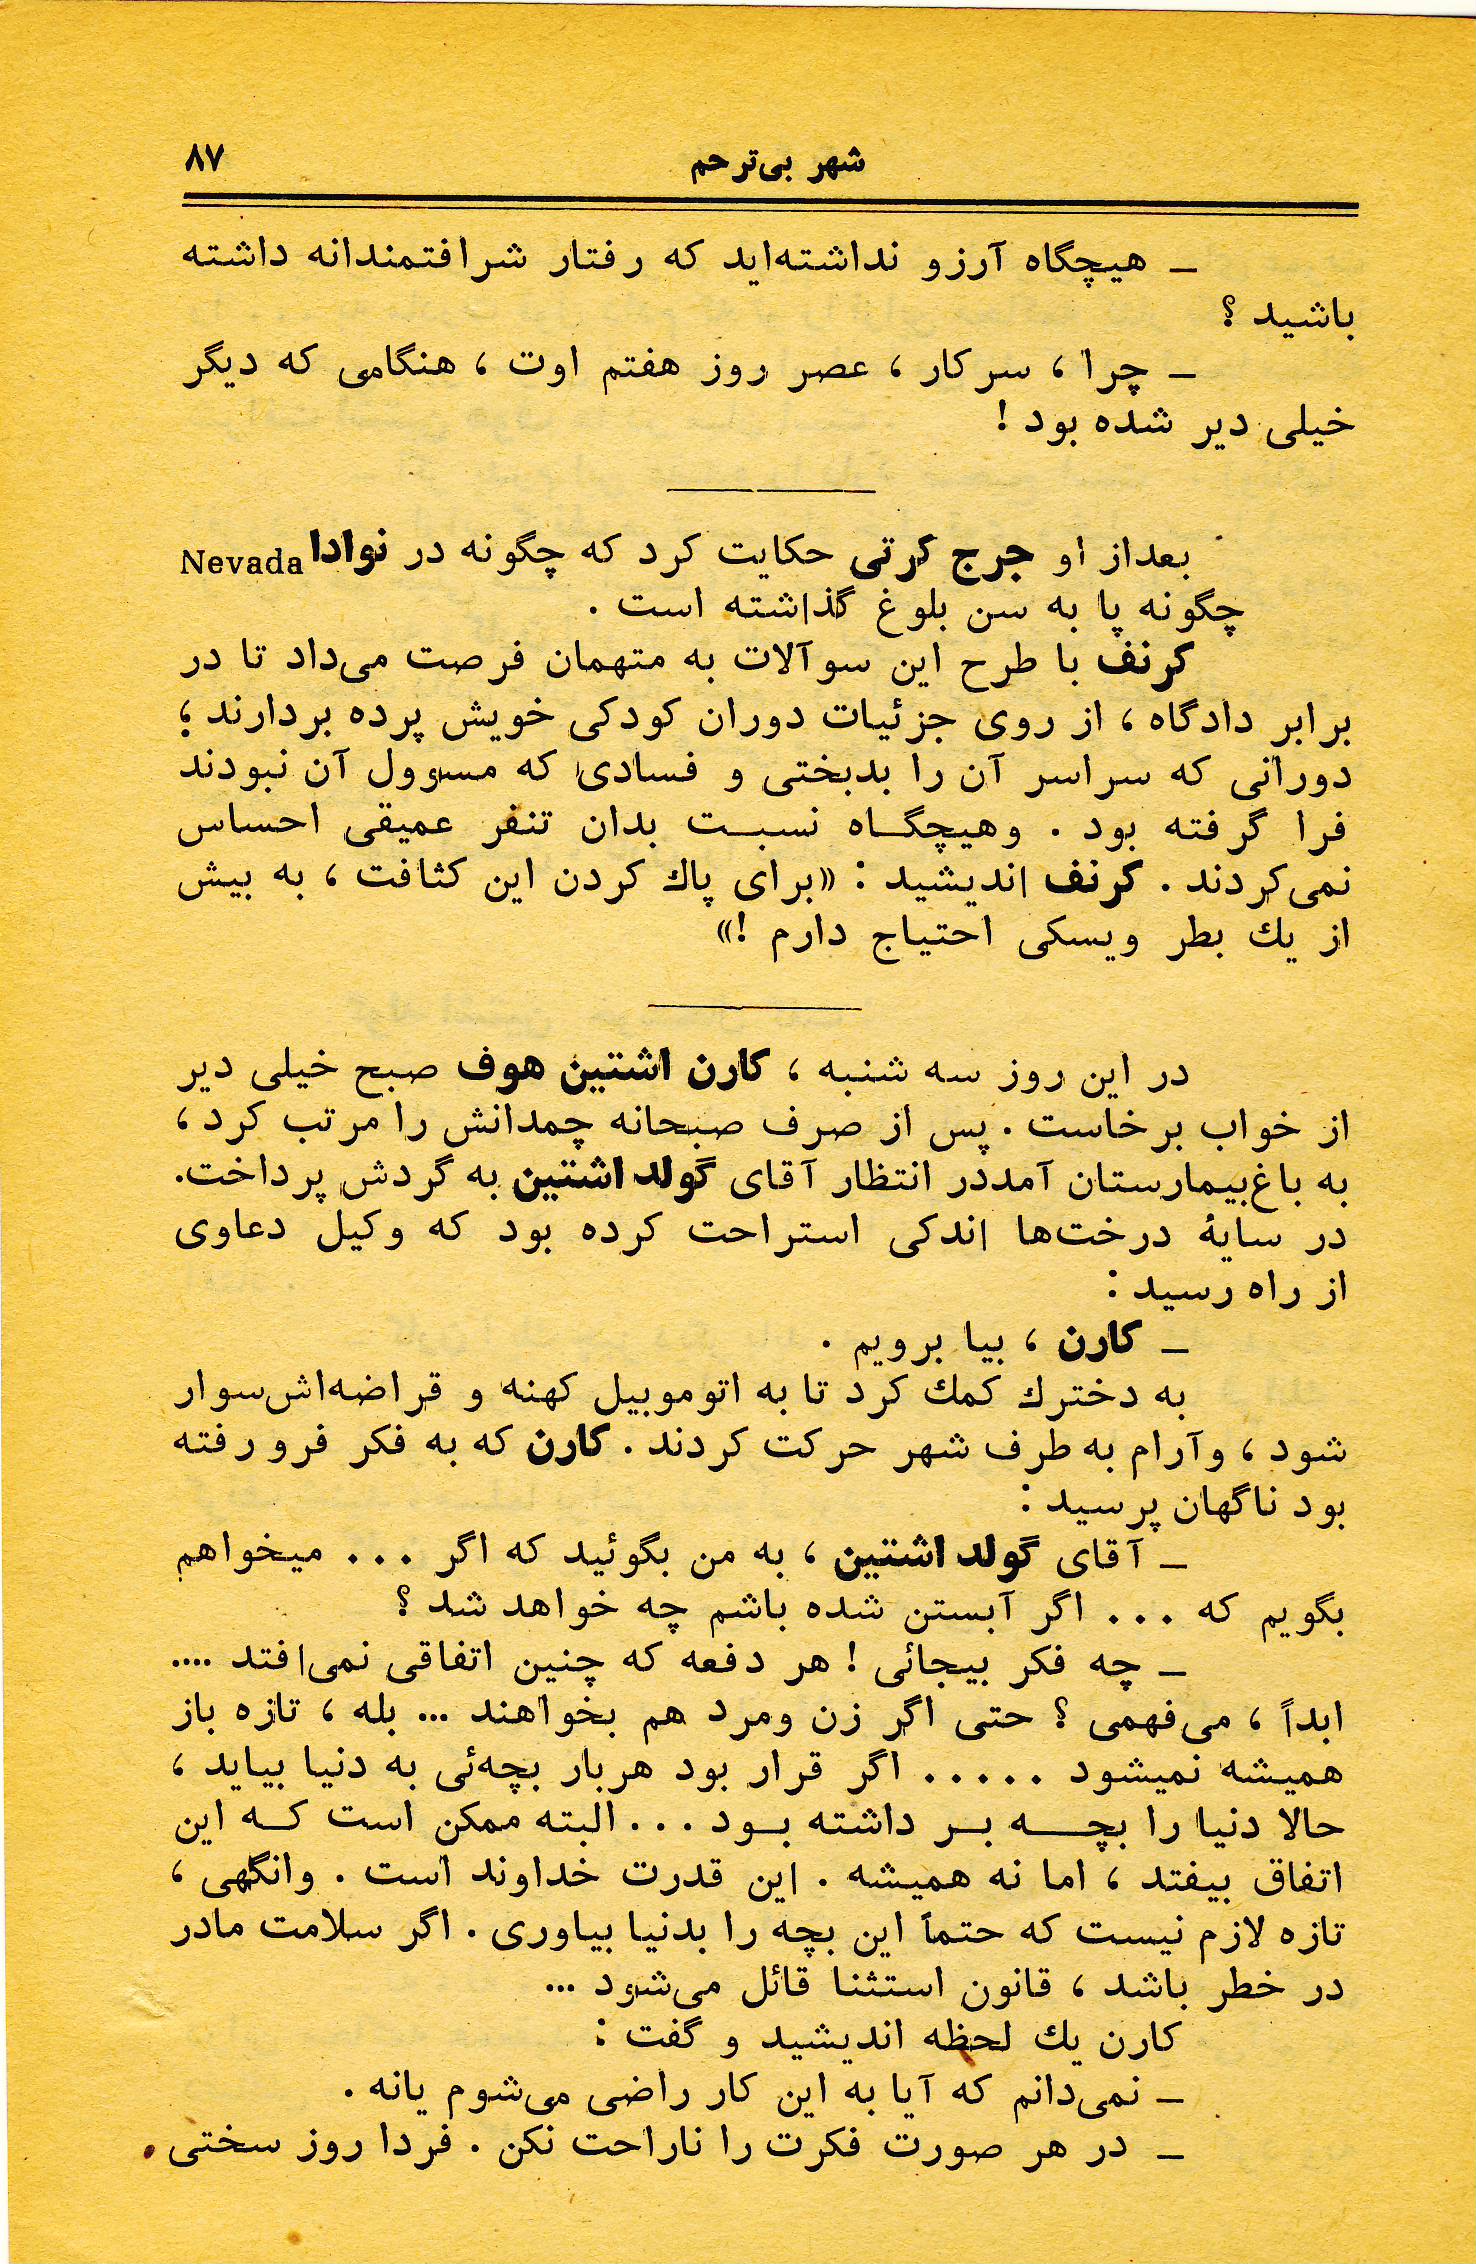 شهر بی‌ترحم ۸۷
ـ هیچگاه آرزو نداشته‌اید که رفتار شرافتمندانه داشته
باشید ؟
ـ چرا ، سرکار ، عصر روز هفتم اوت ، هنگامی که دیگر
خیلی دیر شده بود !
بعداز او جرج کرتی حکایت کرد که چگونه در نوادا Nevada
چگونه پا به سن بلوغ گذاشته است .
کرنف با طرح این سوآلات به متهمان فرصت می‌داد تا در
برابر دادگاه ، از روی جزئیات دوران کودکی خویش پرده بردارند ؛
دورانی که سراسر آن را بدبختی و فسادی که مسوول آن نبودند
فرا گرفته بود . وهیچگـاه نسبـت بدان تنفر عمیقی احساس
نمی‌کردند . کرنف اندیشید : «برای پاك کردن این کثافت ، به بیش
از یك بطر ویسکی احتیاج دارم !»
در این روز سه شنبه ، کارن اشتین هوف صبح خیلی دیر
از خواب برخاست . پس از صرف صبحانه چمدانش را مرتب کرد ،
به باغ‌بیمارستان آمددر انتظار آقای گولد اشتین به گردش پرداخت.
در سایهٔ درخت‌ها اندکی استراحت کرده بود که وکیل دعاوی
از راه رسید :
ـ کارن ، بیا برویم .
به دخترك کمك کرد تا به اتوموبیل کهنه و قراضه‌اش‌سوار
شود ، وآرام به طرف شهر حرکت کردند . کارن که به فکر فرو رفته
بود ناگهان پرسید :
ـ آقای گولد اشتین ، به من بگوئید که اگر . . . میخواهم
بگویم که . . . اگر آبستن شده باشم چه خواهد شد ؟
ـ چه فکر بیجائی ! هر دفعه که چنین اتفاقی نمی‌افتد ....
ابداً ، می‌فهمی ؟ حتی اگر زن ومرد هم بخواهند ... بله ، تازه باز
همیشه نمیشود . . . . . اگر قرار بود هربار بچه‌ئی به دنیا بیاید ،
حالا دنیا را بچـــه بــر داشته بــود . . . البته ممکن است کــه این
اتفاق بیفتد ، اما نه همیشه . این قدرت خداوند است . وانگهی ،
تازه لازم نیست که حتماً این بچه را بدنیا بیاوری . اگر سلامت مادر
در خطر باشد ، قانون استثنا قائل می‌شود ...
کارن یك لحظه اندیشید و گفت :
ـ نمی‌دانم که آیا به این کار راضی می‌شوم یانه .
ـ در هر صورت فکرت را ناراحت نکن . فردا روز سختی